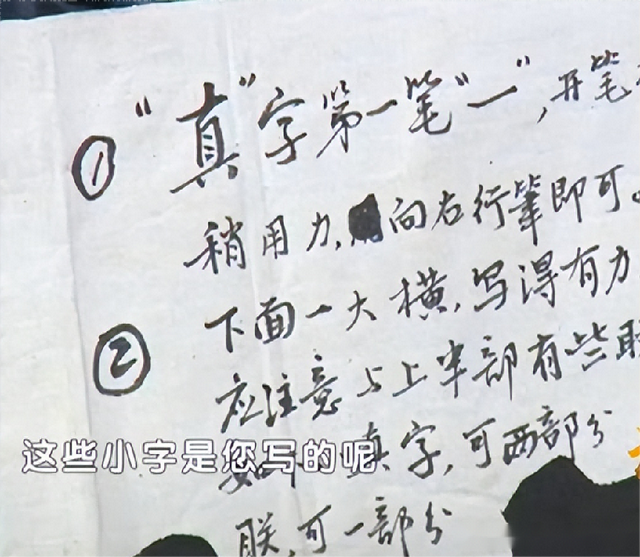 ① “真”字第一笔“一”,开笔
稍用力,向右行筆即可。
② 下面一大横,写得有力
应注意与上半部有些
真字,可两部分
联,可一部分
这些小字是您写的呢